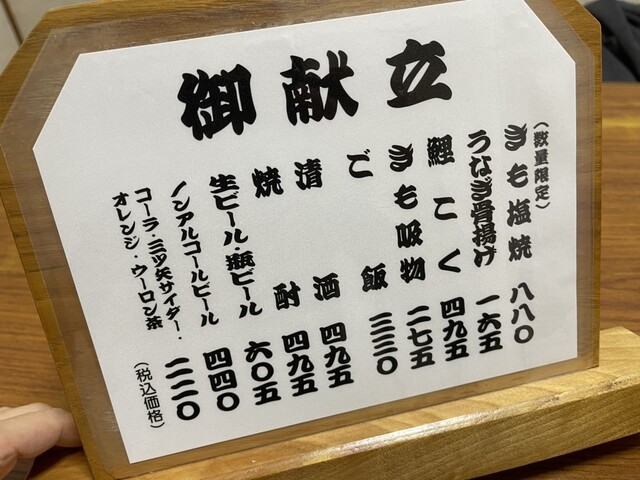 御献立
(数量限定)
きも塩焼 八八〇
うなぎ骨揚げ 一六五
鯉こく 四九五
きも吸物 二七五
ご飯 三三〇
清酒 四九五
焼酎 四九五
生ビール・瓶ビール 六〇五
ノンアルコールビール 四四〇
コーラ・三ツ矢サイダー・
オレンジ・ウーロン茶 二二〇
(税込価格)